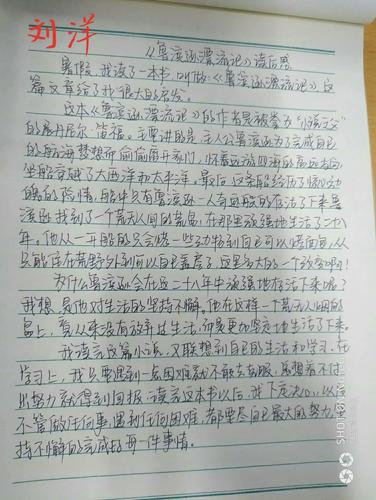 刘洋
《鲁滨逊漂流记》读后感
暑假,我读了一本书,叫做《鲁滨逊漂流记》,这
篇文章给了我很大的启发。
这本《鲁滨逊漂流记》的作者是被拳为“小说之父”
的丹尼尔·笛福。主要讲的是:主人公鲁滨逊为了完成自己
的航海梦想而偷偷离开家门,怀着远游四海的高远志向
坐船穿越了大西洋和太平洋。最后,这条船经历了惊心动
魄的险情,船中只有鲁滨逊一人奇迹般的存活了下来。鲁
滨逊找到了个荒无人间的荒岛,在那里顽强地生活了二十八
年。他从一开始的只会做一些动物到自己可以烤面包,从
只能住在荒野外到可以自己盖房子,这是多大的一个改变啊!
为什么鲁滨逊会在这二十八年中顽强地存活下来呢?
我想,是他对生活的坚持不懈。他在这样一个荒无人烟的
岛上,看从来没有放弃过生活,而是更加坚定地生活了下来。
我读完这篇小说,又联想到自己的生活和学习。在
学习上,我只要遇到一点困难就不敢去克服,总想着不付
出努力就得到回报。读完这本书以后,我下定决心:以后
不管做任何事,遇到任何困难,都要尽自己最大的努力,坚
持不懈的完成好每一件事情。
SHOT ON